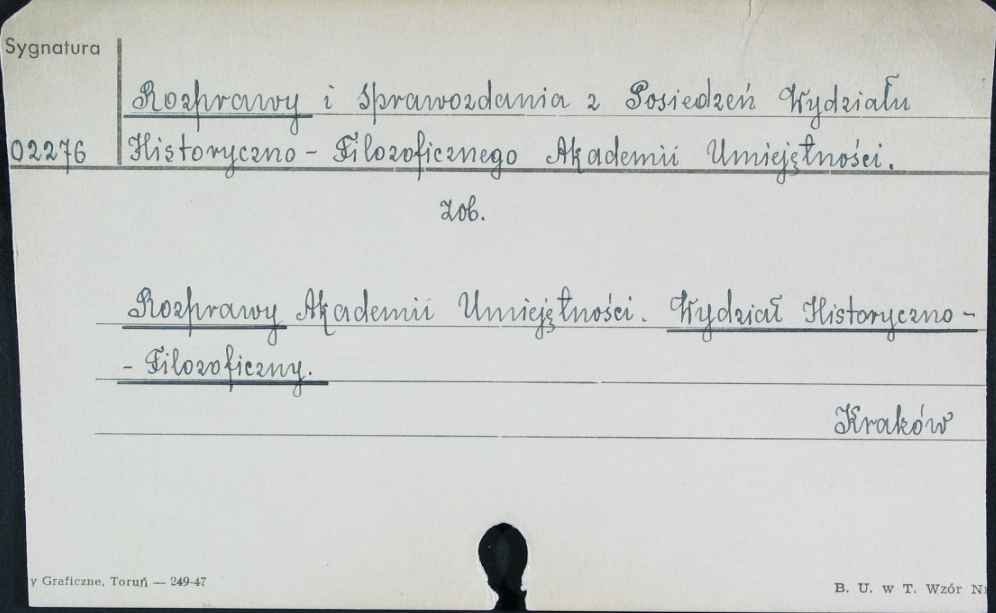 Sygnatura
Rozprawy i sprawozdania z Posiedzeń Wydziału
02276 Historyczno - Filozoficznego Akademii Umiejętności.
zob.
Rozprawy Akademii Umiejętności. Wydział Historyczno -
- Filozoficzny.
Kraków
y Graficzne, Toruń — 249-47
B. U. w T. Wzór N